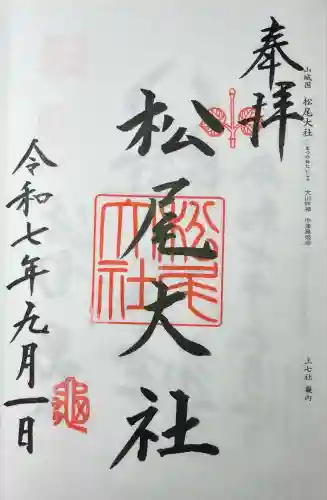 奉拝
山城国 松尾大社 大山咋神 中津島姫命
上七社 畿内
松尾大社
松尾大社
令和七年九月一日